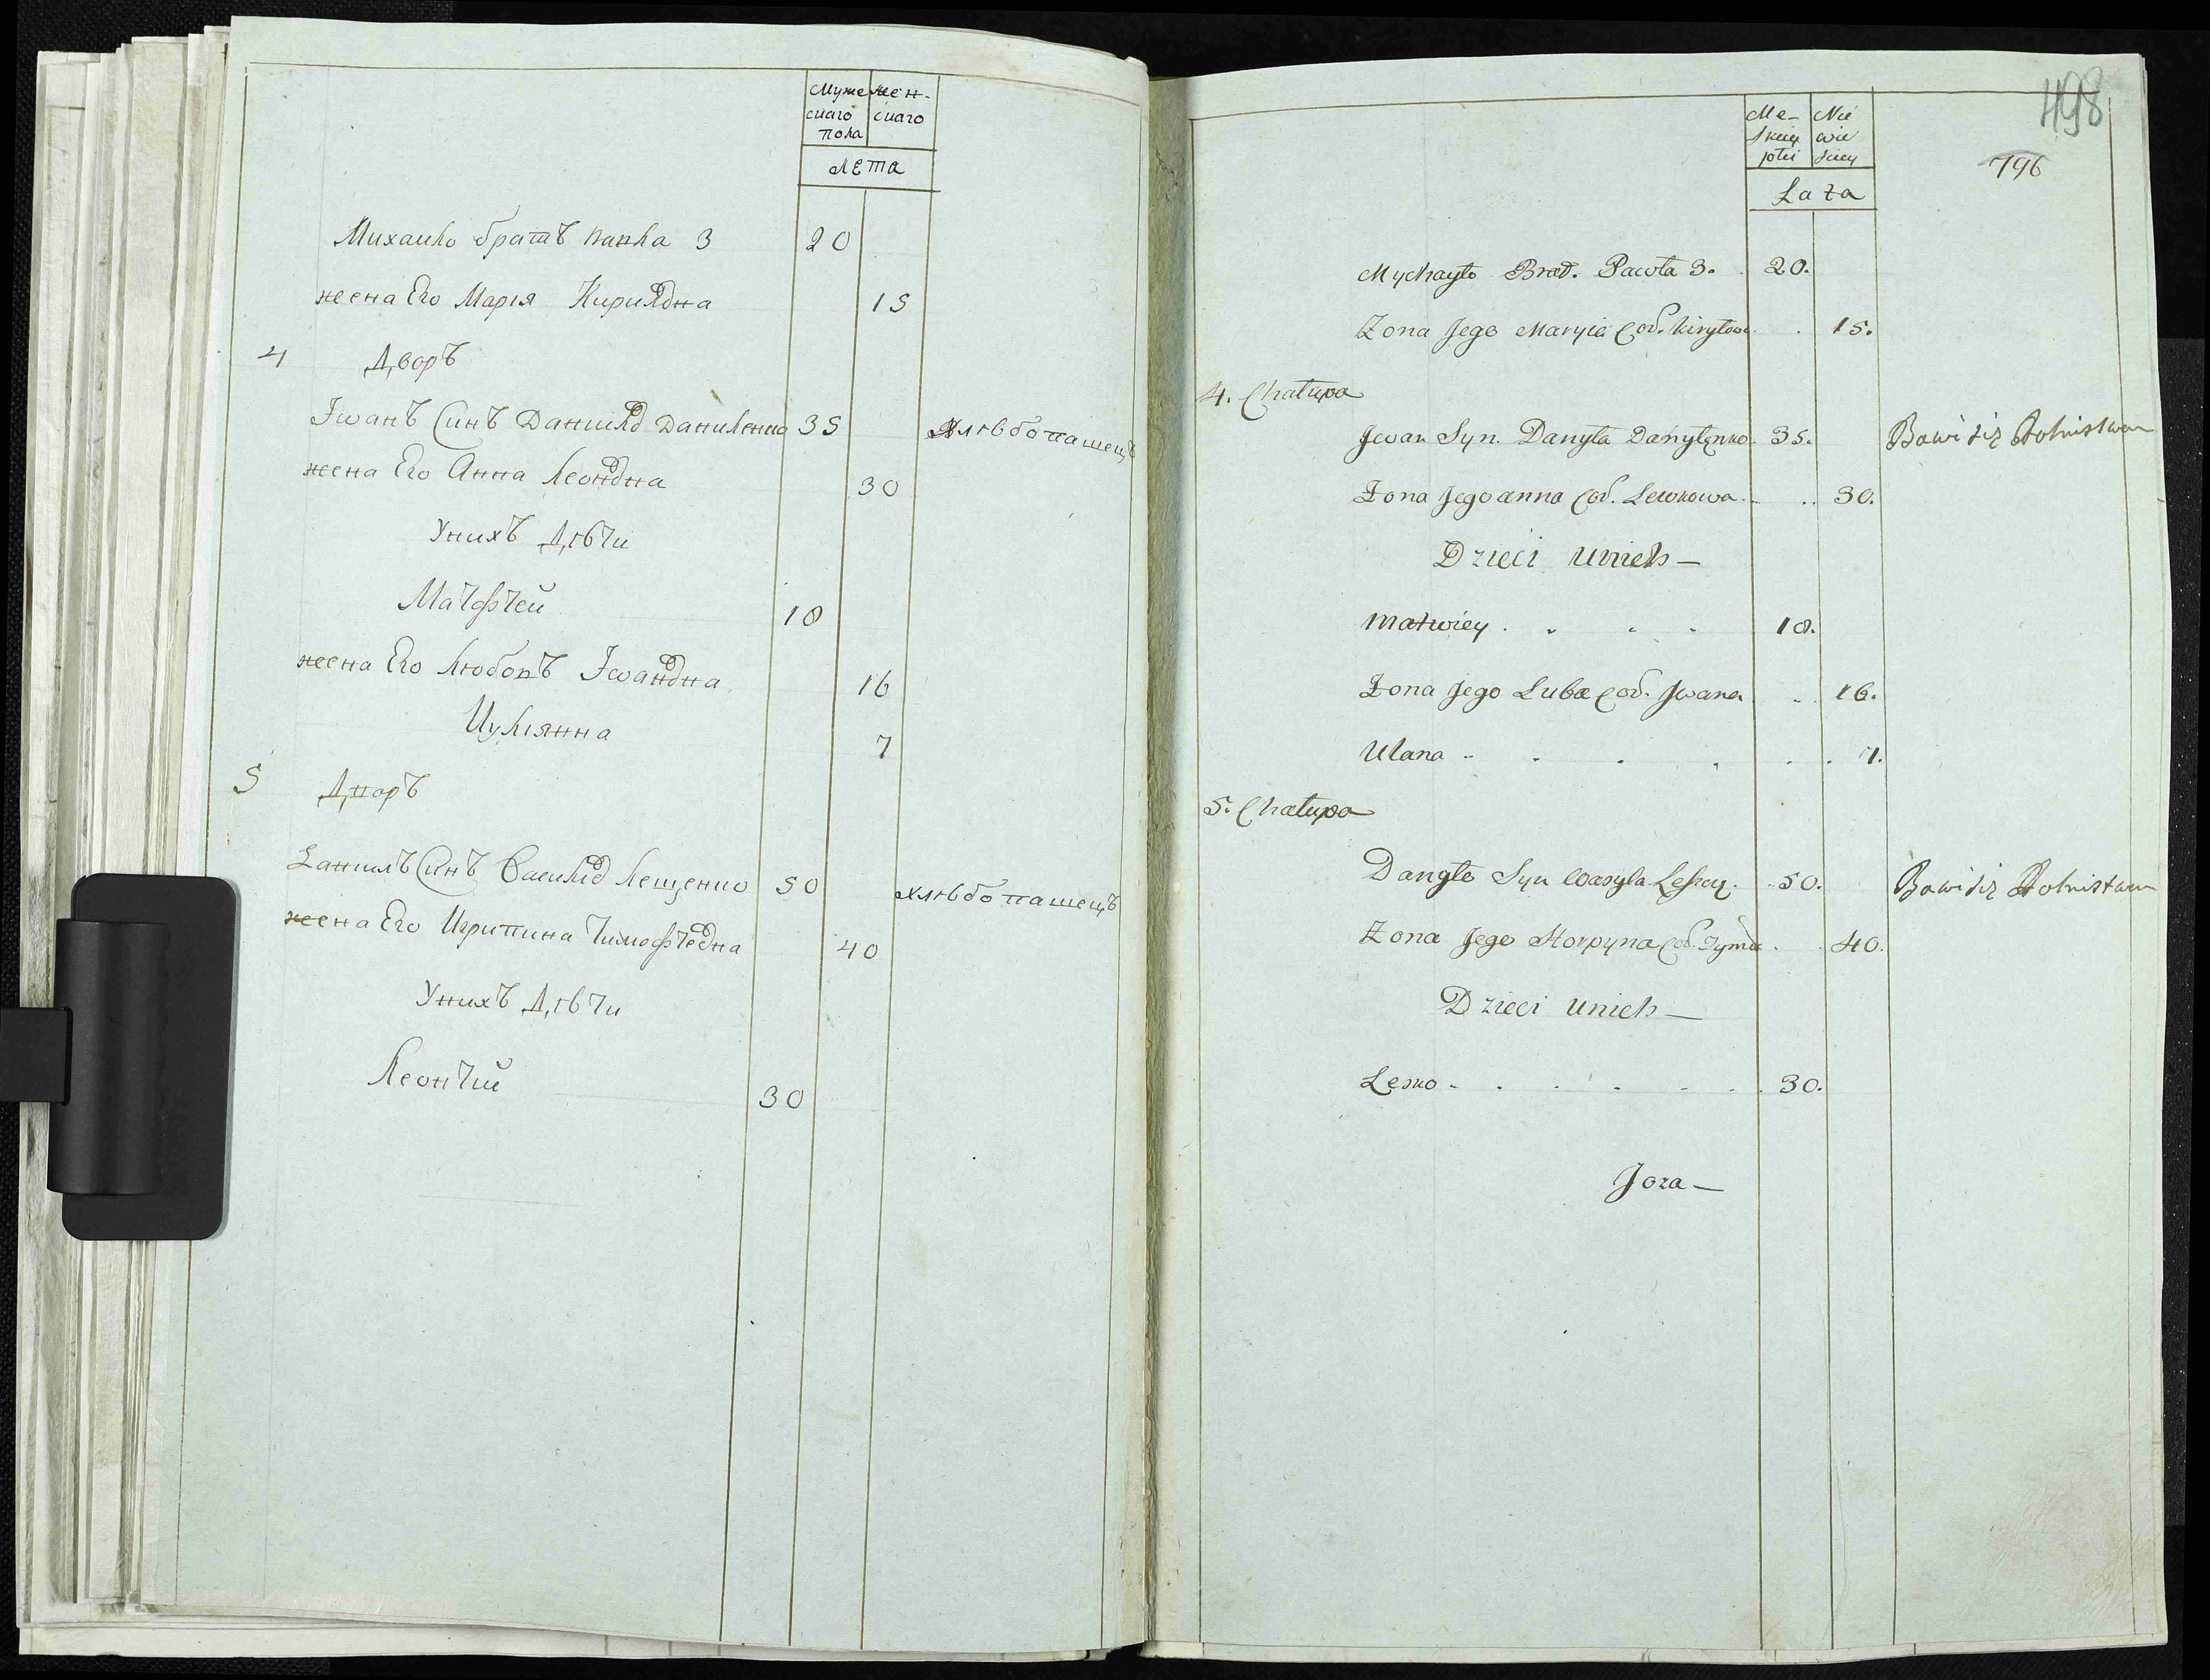 Муже
скаго
пола
жен-
скаго
ЛЕта
Михаило братъ павла 3 20
жена Его Марія Кирилова 15
4 Дворъ
Іванъ Синъ Данила Даниленко 35 хлѣбопашецъ
жена Его Анна Леонова 30
Унихъ Дѣти
Матфей 18
жена Его Любовъ Іванова 16
Иулянна 7
5 Дворъ
Данилъ Синъ Василя Лещенко 50 хлѣбопашецъ
жена Его Игрипина Тимофеева 40
Унихъ Дѣти
Леонтий 30
498
796
Me-
skiey
płci
Nie
wie
sciey
Lata
Mychayło Brat. Pawła 3. 20.
Zona Jego Maryia Cod. Kiryłow. 15.
4. Chałupa
Jwan Syn. Danyła Danyłenko. 35. Bawi się Rolnistwem
Zona Jego anna Cod. Lewkowa. 30.
Dzieci unich —
matwiey 18.
Zona Jego Luba Cod. Jwana 16.
Ulana 7.
5. Chałupa
Danyło Syn Wasyla 50. Bawi się Rolnistwem
Zona Jego Horpyna Cod. Tyma 40.
Dzieci unich —
Lesko 30.